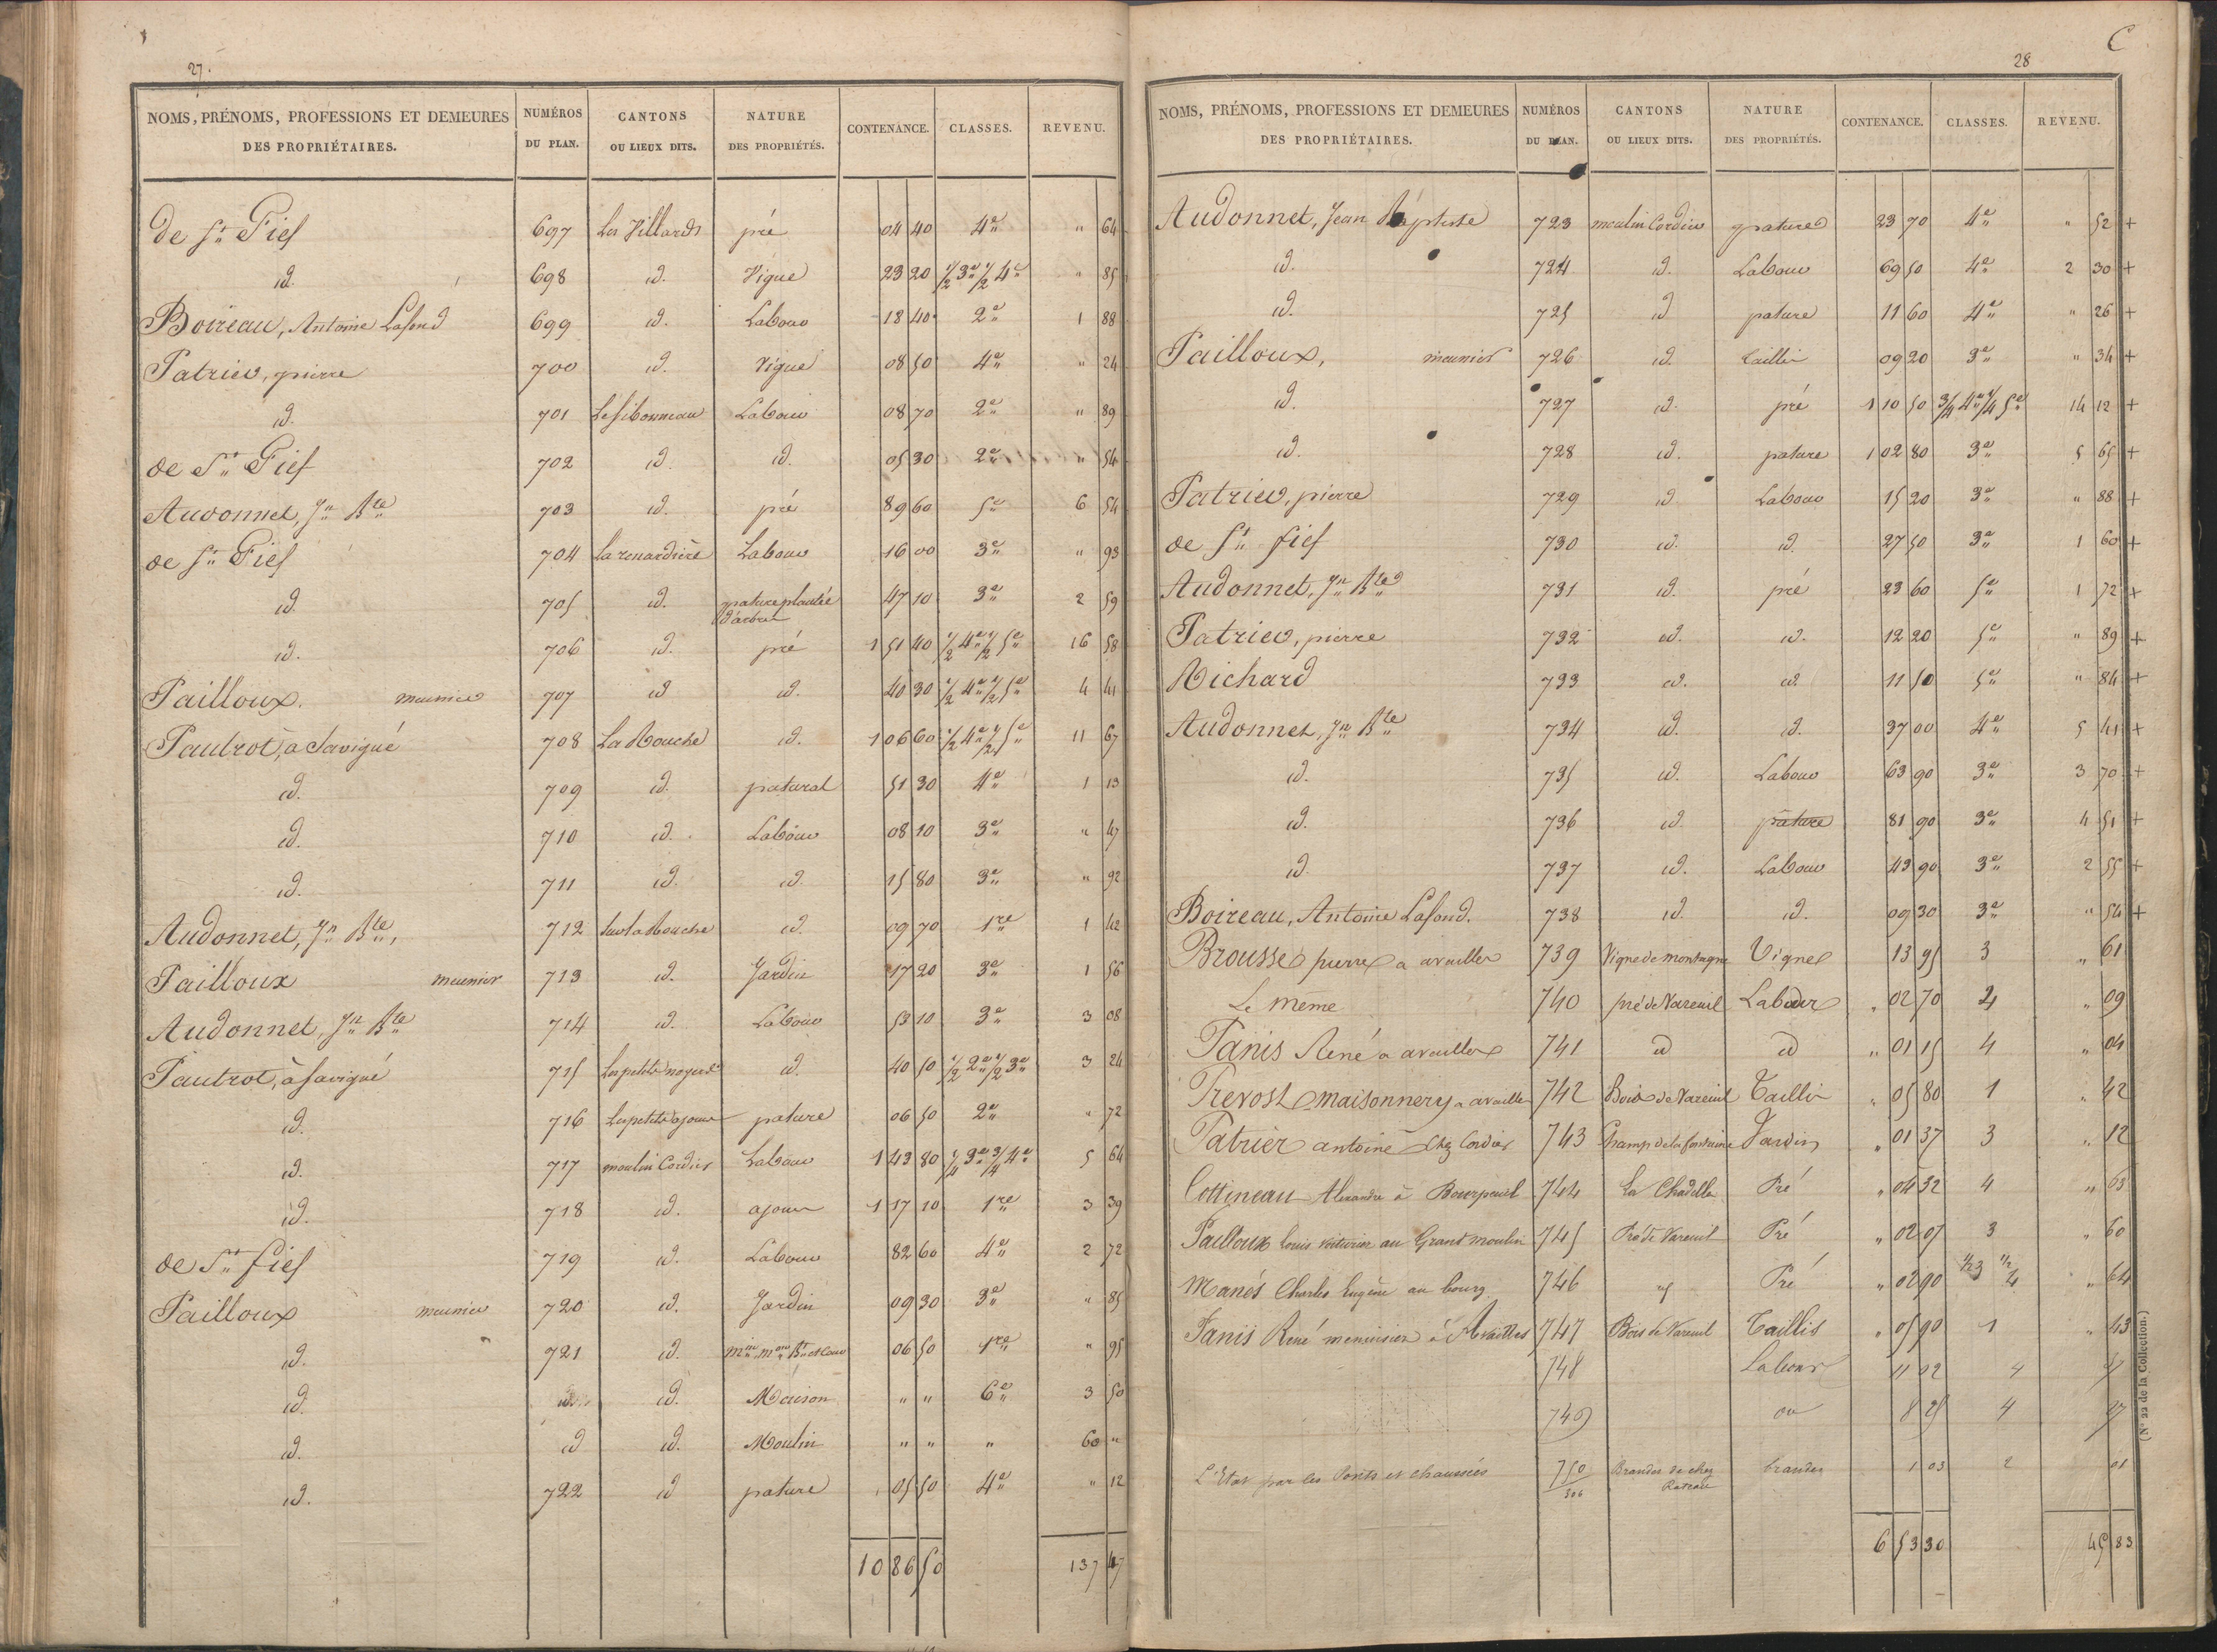 27.
NOMS, PRÉNOMS, PROFESSIONS ET DEMEURES DES PROPRIÉTAIRES. NUMÉROS DU PLAN. CANTONS OU LIEUX DITS. NATURE DES PROPRIÉTÉS. CONTENANCE. CLASSES. REVENU.
de St Fief 697 Les Villards pré 04 40 4e " 64
id. 698 id. Vigne 23 20 1/2 3e 1/2 4e " 85
Boireau, Antoine Lafond 699 id. Labour 18 40 2e 1 88
Patrier, pierre 700 id. Vigne 08 50 4e " 24
id. 701 Labour 08 70 2e " 89
de St Fief 702 id. id. 05 30 2e " 54
Audonnet, Jn Bte 703 id. pré 89 60 5e 6 54
de St Fief 704 La renardière Labour 16 00 3e " 93
id. 705 id. pature plantée d'arbres 47 10 3e 2 59
id. 706 id. pré 1 51 40 1/2 4e 1/2 5e 16 58
Pailloux. meunier 707 id id. 40 30 1/2 4e 1/2 5e 4 41
Pautrot, à Savigné 708 La Mouche id. 1 06 60 1/2 4e 1/2 5e 11 67
id. 709 id. patural 51 30 4e 1 13
id. 710 id. Labour 08 10 3e " 47
id. 711 id. id. 15 80 3e " 92
Audonnet, Jn Bte, 712 id. 09 70 1re 1 42
Pailloux meunier 713 id. Jardin 17 20 3e 1 56
Audonnet, Jn Bte 714 id. Labour 53 10 3e 3 08
Pautrot, à Savigné 715 Les petits noyers id. 40 50 1/2 2e 1/2 3e 3 24
id. 716 Les petits ajoncs pature 06 50 2e " 72
id. 717 moulin Cordier Labour 1 43 80 1/4 3e 3/4 4e 5 64
id. 718 id. ajoncs 1 17 10 1re 3 39
de St fief 719 id. Labour 82 60 4e 2 72
Pailloux meunier 720 id. Jardin 09 30 3e " 85
id. 721 id. 06 50 1re " 95
id. id. id. Maison " " 6e 3 50
id. id id. Moulin " " " 60 "
id. 722 id pature 05 50 4e " 12
10 86 50 137 47
28
C
NOMS, PRÉNOMS, PROFESSIONS ET DEMEURES DES PROPRIÉTAIRES. NUMÉROS DU PLAN. CANTONS OU LIEUX DITS. NATURE DES PROPRIÉTÉS. CONTENANCE. CLASSES. REVENU.
Audonnet, Jean Baptiste 723 moulin Cordier pature 23 70 4e " 52 +
id. 724 id. Labour 69 50 4e 2 30 +
id. 725 id pature 11 60 4e " 26 +
Pailloux, meunier 726 id. taillis 09 20 3e " 34 +
id. 727 id. pré 1 10 50 3/4 4e 1/4 5e 14 12 +
id. 728 id. pature 1 02 80 3e 5 65 +
Patrier, pierre 729 id Labour 15 20 3e " 88 +
de St fief 730 id. id. 27 50 3e 1 60 +
Audonnet, Jn Bte 731 id. pré 23 60 5e 1 72 +
Patrier, pierre 732 id. id. 12 20 5e " 89 +
Richard 733 id. id. 11 50 5e " 84 +
Audonnet, Jn Bte 734 id. id. 37 00 4e 5 41 +
id. 735 id. Labour 63 90 3e 3 70 +
id. 736 id. pature 81 90 3e 4 51 +
id. 737 id. Labour 43 90 3e 2 55 +
Boireau, Antoine Lafond. 738 id. id. 09 30 3e " 54 +
Brousse pierre a availles 739 Vigne de montagne Vigne 13 95 3 " 61
Le même 740 pré de Vareuil Labour " 02 70 4 " 09
Tanis René a availles 741 id id " 01 15 4 " 04
Prevost maisonnery a availles 742 Bois de Vareuil Taillis " 05 80 1 " 42
Patrier antoine chez Cordier 743 Champ de la fontaine Jardin " 01 37 3 " 12
Cottineau Alexandre à Bourpeuil 744 La Chadelle Pré " 04 32 4 " 63
Pailloux louis voiturier au Grand moulin 745 Pré de Vareuil Pré " 02 07 3 " 60
Manès Charles Eugène au bourg 746 id Pré " 02 90 1/2 3 1/2 4 " 64
Tanis René menuisier à Availles 747 Bois de Vareuil Taillis " 05 90 1 " 43
748 Labour 11 02 4
749 8 25 4 27
L'Etat par les Ponts et chaussées 750/306 Brandes de chez Rateau brandes 1 03 2 01
6 53 30 45 83
(N° 22 de la Collection.)